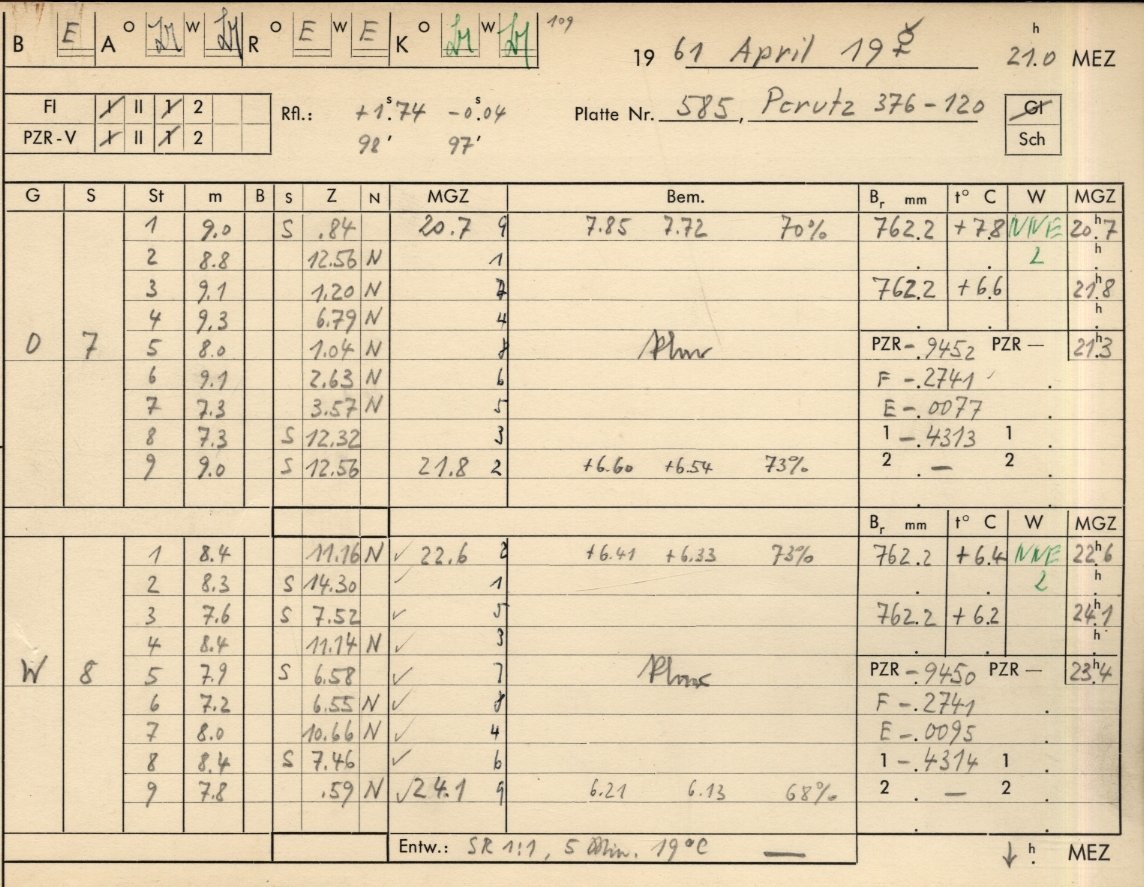 B E A O W R O E W E K O W 109 19 61 April 19 21.0 h MEZ
FI I II 1 2 Rfl.: +1.ˢ74 -0.ˢ04 Platte Nr. 585, Perutz 376-120 GI
PZR-V I II 1 2 98' 97' Sch
G S St m B S Z N MGZ Bem. Bᵣ mm t° C W MGZ
1 9.0 S .84 20.7 9 7.85 7.72 70% 762.2 +7.8 NNE 20.ʰ7
2 8.8 12.56 N 1 2 h
3 9.1 1.20 N 762.2 +6.6 21.ʰ8
4 9.3 6.79 N 4 h
O 7 5 8.0 1.04 N 8 PZR -.9452 PZR — 21.ʰ3
6 9.1 2.63 N 6 F -.2741
7 7.3 3.57 N 5 E -.0077
8 7.3 S 12.32 3 1 -.4313 1
9 9.0 S 12.56 21.8 2 +6.60 +6.54 73% 2 — 2
Bᵣ mm t° C W MGZ
1 8.4 11.16 N ✓ 22.6 2 +6.41 +6.33 73% 762.2 +6.4 NNE 22.ʰ6
2 8.3 S 14.30 ✓ 1 2 h
3 7.6 S 7.52 ✓ 5 762.2 +6.2 24.ʰ1
4 8.4 11.14 N ✓ 3 h
W 8 5 7.9 S 6.58 ✓ 7 PZR -.9450 PZR — 23.ʰ4
6 7.2 6.55 N ✓ 8 F -.2741
7 8.0 10.66 N ✓ 4 E -.0095
8 8.4 S 7.46 ✓ 6 1 -.4314 1
9 7.8 .59 N ✓ 24.1 9 6.21 6.13 68% 2 — 2
Entw.: SR 1:1, 5 Min. 19°C — h MEZ